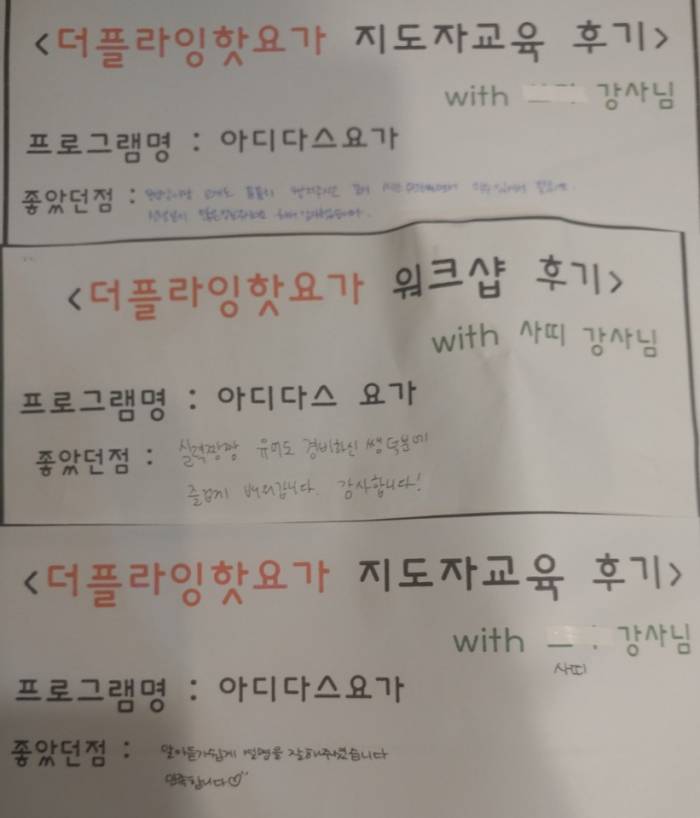 <더플라잉핫요가 지도자교육 후기>
with 강사님
프로그램명 : 아디다스요가
좋았던점 :
<더플라잉핫요가 워크샵 후기>
with 사띠 강사님
프로그램명 : 아디다스 요가
좋았던점 : 실력짱짱 유머도 겸비하신 쌤 덕분에
즐겁게 배워갑니다. 감사합니다!
<더플라잉핫요가 지도자교육 후기>
with 강사님
사띠
프로그램명 : 아디다스요가
좋았던점 : 알아듣기쉽게 설명을 잘해주셨습니다
만족합니다♡